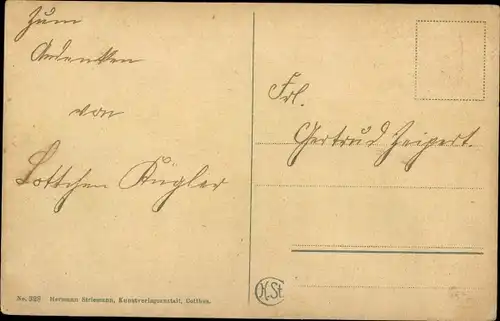 Zum
Andenken
von
Lottchen Kugler
Frl.
Gertrud Zeipert.
No. 328 Hermann Striemann, Kunstverlagsanstalt, Cottbus.
H.St.